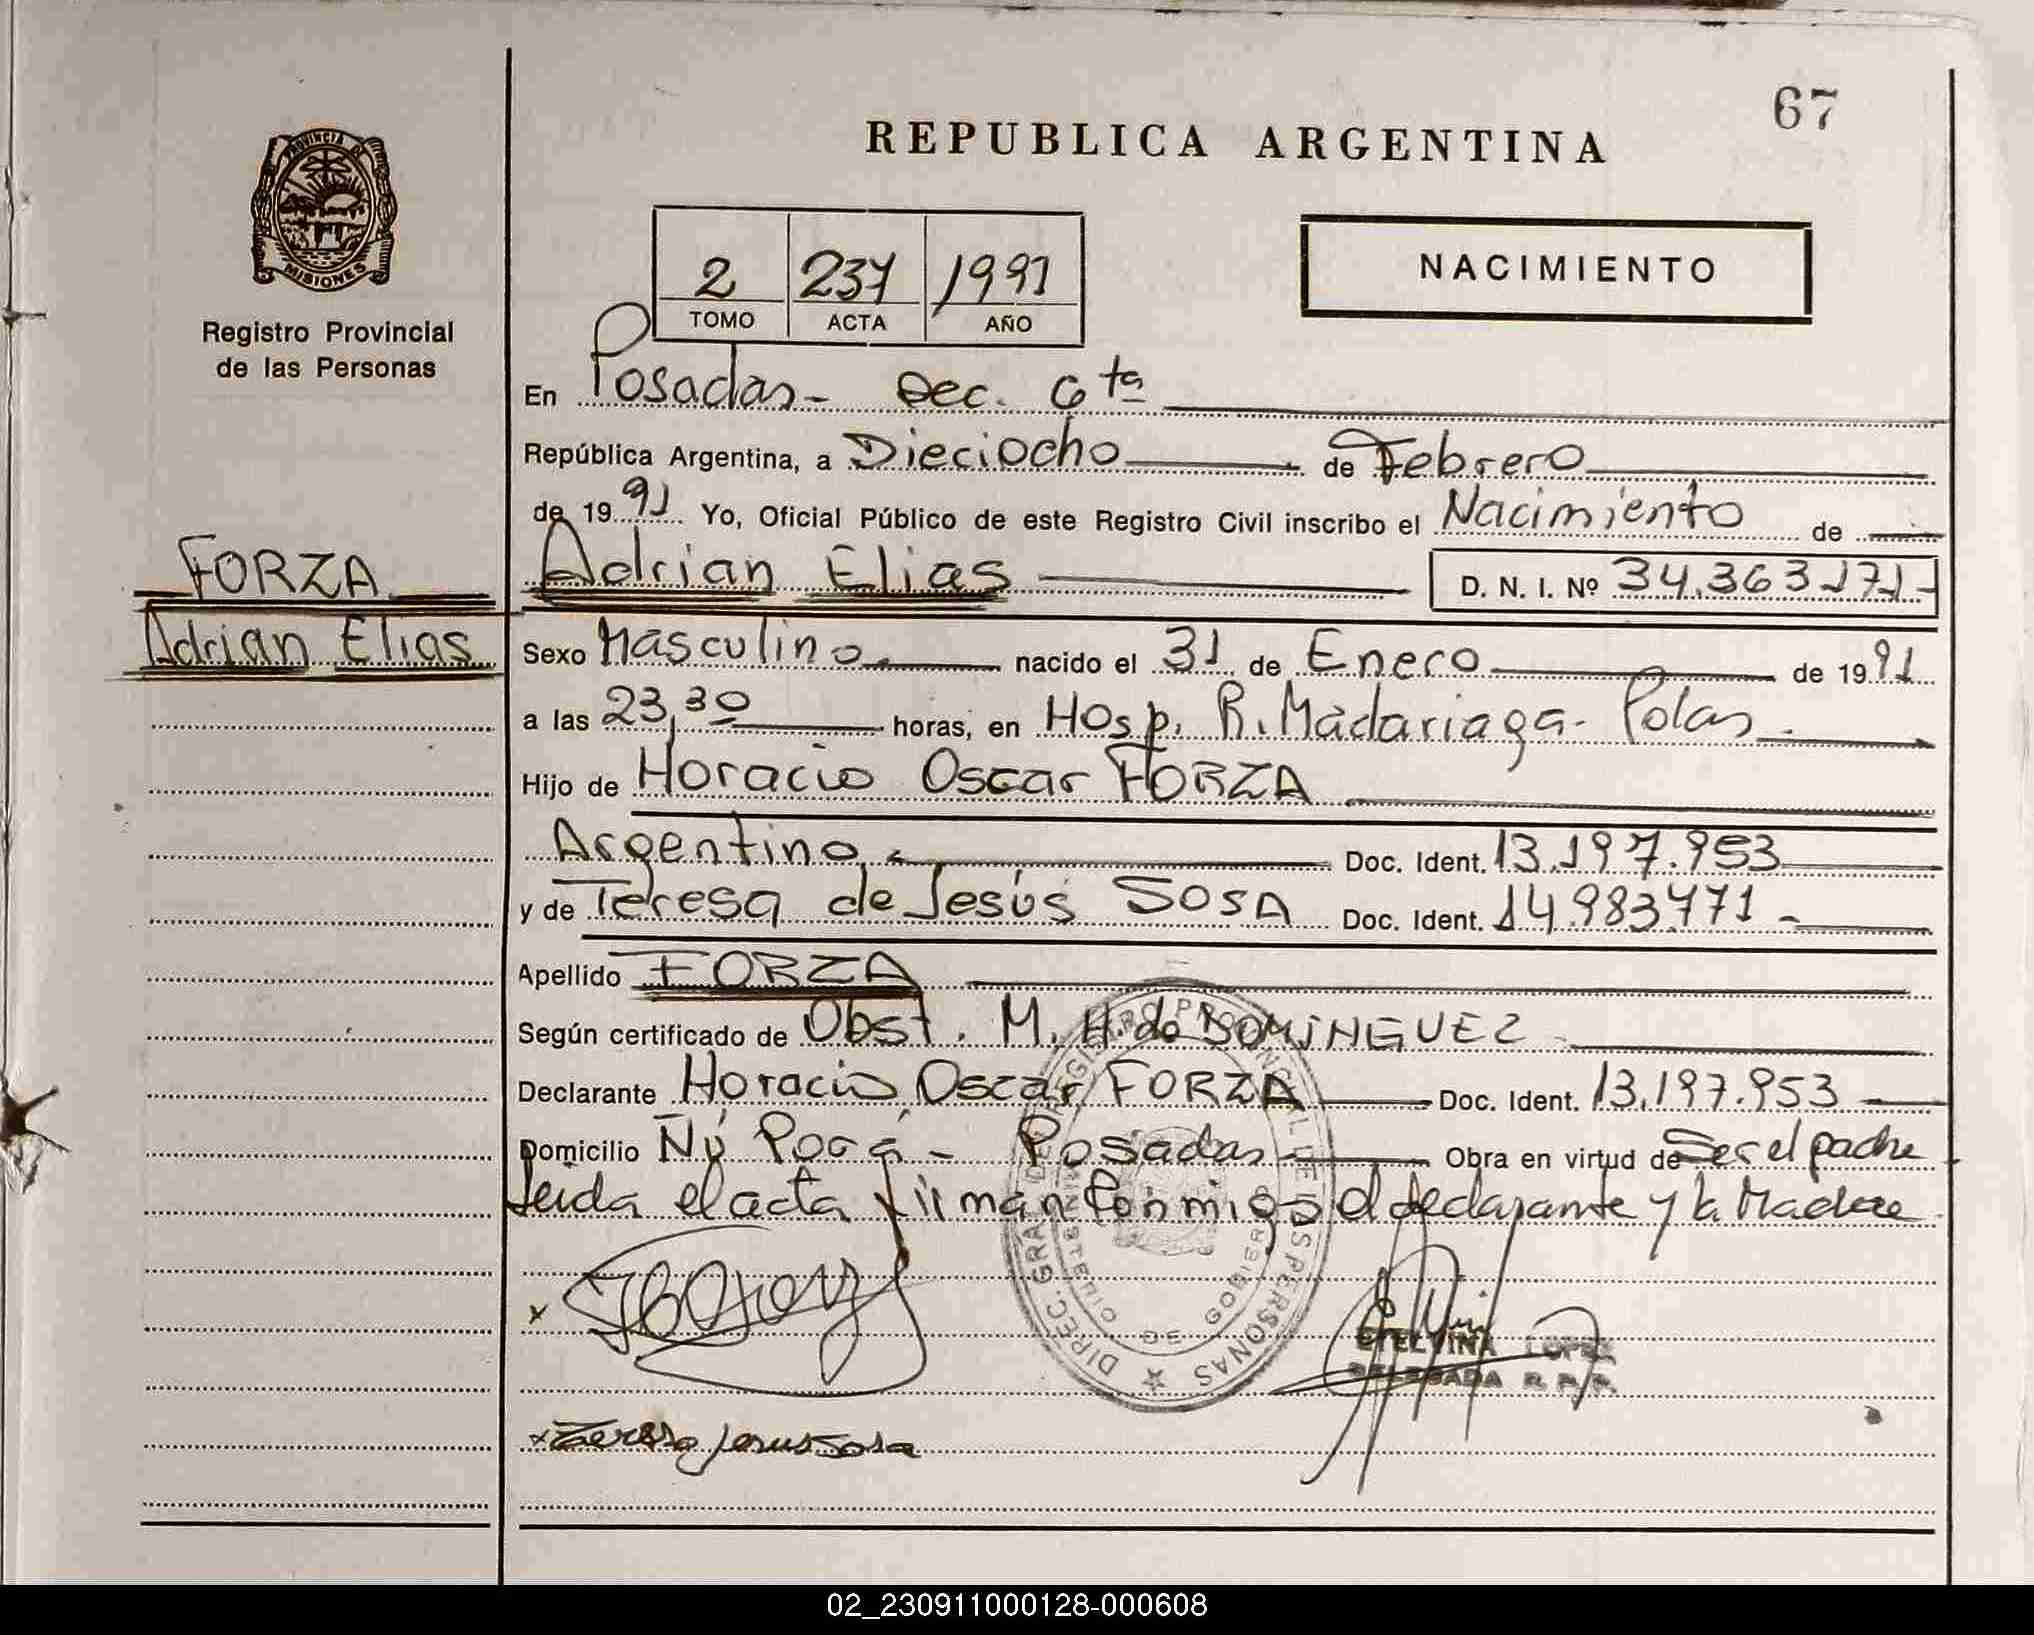 67
REPUBLICA ARGENTINA
PROVINCIA DE
MISIONES
Registro Provincial
de las Personas
NACIMIENTO
2 237 1991
TOMO ACTA AÑO
En Posadas - Sec. 6ta
República Argentina, a Dieciocho de Febrero
de 1991 Yo, Oficial Público de este Registro Civil inscribo el Nacimiento de
FORZA
Adrian Elias
Adrian Elias D. N. I. Nº 34.363.171-
Sexo Masculino. nacido el 31 de Enero de 1991
a las 23,30 horas, en Hosp. R. Madariaga - Pdas.
Hijo de Horacio Oscar FORZA
Argentino. Doc. Ident. 13.197.953
y de Teresa de Jesús SOSA Doc. Ident. 14.983.471-
Apellido FORZA
Según certificado de Obst. M. H. de DOMINGUEZ
Declarante Horacio Oscar FORZA Doc. Ident. 13.197.953
Domicilio Ñú Porá - Posadas - Obra en virtud de Ser el padre
Leida el acta firman conmigo el declarante y la Madre
DIREC. GRAL. DE REGISTRO PROVINCIAL DE LAS PERSONAS
ETELVINA LOPEZ
DELEGADA R. P. P.
x Teresa Jesus Sosa
02_230911000128-000608